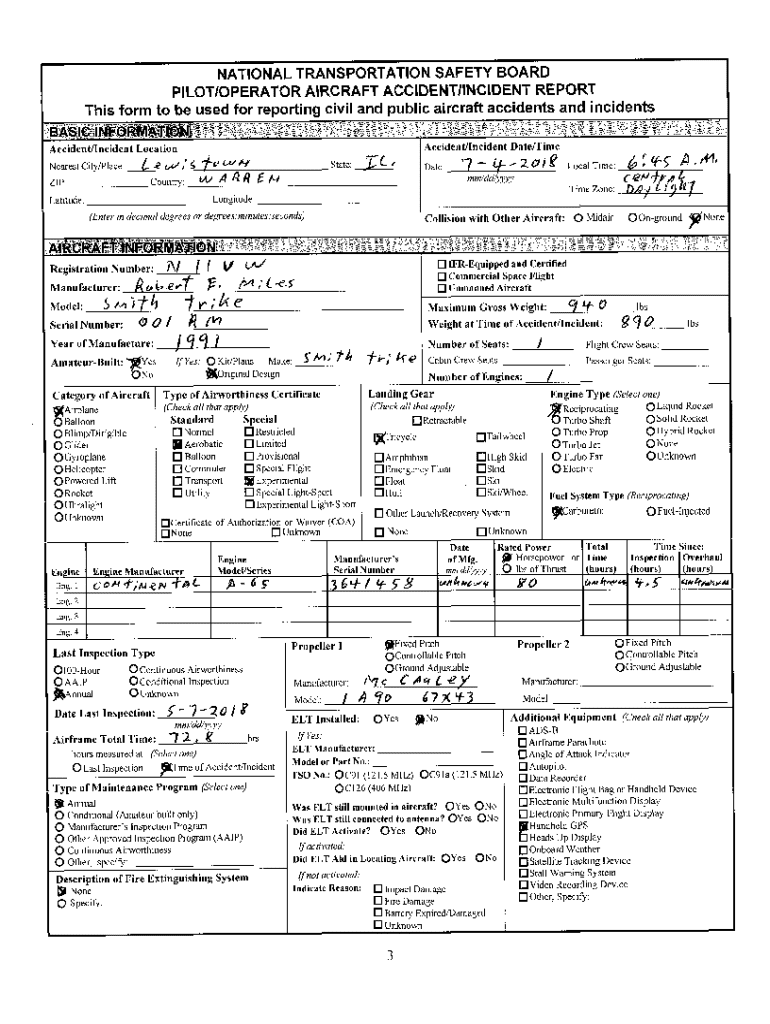 NATIONAL TRANSPORTATION SAFETY BOARD
PILOT/OPERATOR AIRCRAFT ACCIDENT/INCIDENT REPORT
This form to be used for reporting civil and public aircraft accidents and incidents
BASIC INFORMATION
Accident/Incident Location
Nearest City/Place Lewistown State: IL.
ZIP Country: WARREN
Latitude: Longitude
(Enter in decimal degrees or degrees:minutes:seconds)
Accident/Incident Date/Time
Date 7-4-2018 Local Time: 6:45 A.M.
mm/dd/yyyy
Time Zone: CENTRAL DAYLIGHT
Collision with Other Aircraft: Midair On-ground None
AIRCRAFT INFORMATION
Registration Number: N 11 V W
Manufacturer: Robert E. Miles
Model: Smith Trike
Serial Number: 001 RM
Year of Manufacture: 1991
Amateur-Built: Yes If Yes: Kit/Plans Make: Smith trike
No Original Design
IFR-Equipped and Certified
Commercial Space Flight
Unmanned Aircraft
Maximum Gross Weight: 940 lbs
Weight at Time of Accident/Incident: 890 lbs
Number of Seats: 1 Flight Crew Seats:
Cabin Crew Seats Passenger Seats:
Number of Engines: 1
Category of Aircraft
Airplane
Balloon
Blimp/Dirigible
Glider
Gyroplane
Helicopter
Powered Lift
Rocket
Ultralight
Unknown
Type of Airworthiness Certificate
(Check all that apply)
Standard Special
Normal Restricted
Aerobatic Limited
Balloon Provisional
Commuter Special Flight
Transport Experimental
Utility Special Light-Sport
Experimental Light-Sport
Certificate of Authorization or Waiver (COA)
None Unknown
Landing Gear
(Check all that apply)
Retractable
Tricycle Tailwheel
Amphibian High Skid
Emergency Float Skid
Float Ski
Hull Ski/Wheel
Other Launch/Recovery System
None Unknown
Engine Type (Select one)
Reciprocating Liquid Rocket
Turbo Shaft Solid Rocket
Turbo Prop Hybrid Rocket
Turbo Jet None
Turbo Fan Unknown
Electric
Fuel System Type (Reciprocating)
Carburetor Fuel-Injected
Engine Engine Manufacturer Engine Model/Series Manufacturer's Serial Number Date of Mfg. mm/dd/yyyy Rated Power Horsepower or lbs of Thrust Total Time (hours) Time Since: Inspection (hours) Overhaul (hours)
Eng. 1 CONTINENTAL A-65 3641458 unknown 80 unknown 4.5 unknown
Eng. 2
Eng. 3
Eng. 4
Last Inspection Type
100-Hour Continuous Airworthiness
AAIP Conditional Inspection
Annual Unknown
Date Last Inspection: 5-7-2018
mm/dd/yyyy
Airframe Total Time: 72.8 hrs
hours measured at (Select one)
Last Inspection Time of Accident/Incident
Type of Maintenance Program (Select one)
Annual
Conditional (Amateur built only)
Manufacturer's Inspection Program
Other Approved Inspection Program (AAIP)
Continuous Airworthiness
Other, specify:
Description of Fire Extinguishing System
None
Specify:
Propeller 1 Fixed Pitch
Controllable Pitch
Ground Adjustable
Manufacturer: Mc CAuley
Model: 1A90 67X43
Propeller 2 Fixed Pitch
Controllable Pitch
Ground Adjustable
Manufacturer:
Model
ELT Installed: Yes No
If Yes:
ELT Manufacturer:
Model or Part No.:
TSO No.: C91 (121.5 MHz) C91a (121.5 MHz)
C126 (406 MHz)
Was ELT still mounted in aircraft? Yes No
Was ELT still connected to antenna? Yes No
Did ELT Activate? Yes No
If activated:
Did ELT Aid in Locating Aircraft: Yes No
If not activated:
Indicate Reason: Impact Damage
Fire Damage
Battery Expired/Damaged
Unknown
Additional Equipment (Check all that apply)
ADS-B
Airframe Parachute
Angle of Attack Indicator
Autopilot
Data Recorder
Electronic Flight Bag or Handheld Device
Electronic Multifunction Display
Electronic Primary Flight Display
Handheld GPS
Heads Up Display
Onboard Weather
Satellite Tracking Device
Stall Warning System
Video Recording Device
Other, Specify:
3